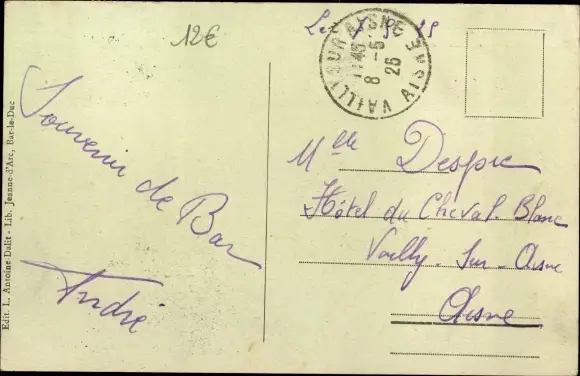 12€
VAILLY SUR AISNE
11 45
8 -5
25
AISNE
Souvenir de Bar
André
Mlle Despic
Hôtel du Cheval-Blanc
Vailly-Sur-Aisne
Aisne
Edit. L. Antoine Dalit - Lib. Jeanne-d'Arc, Bar-le-Duc